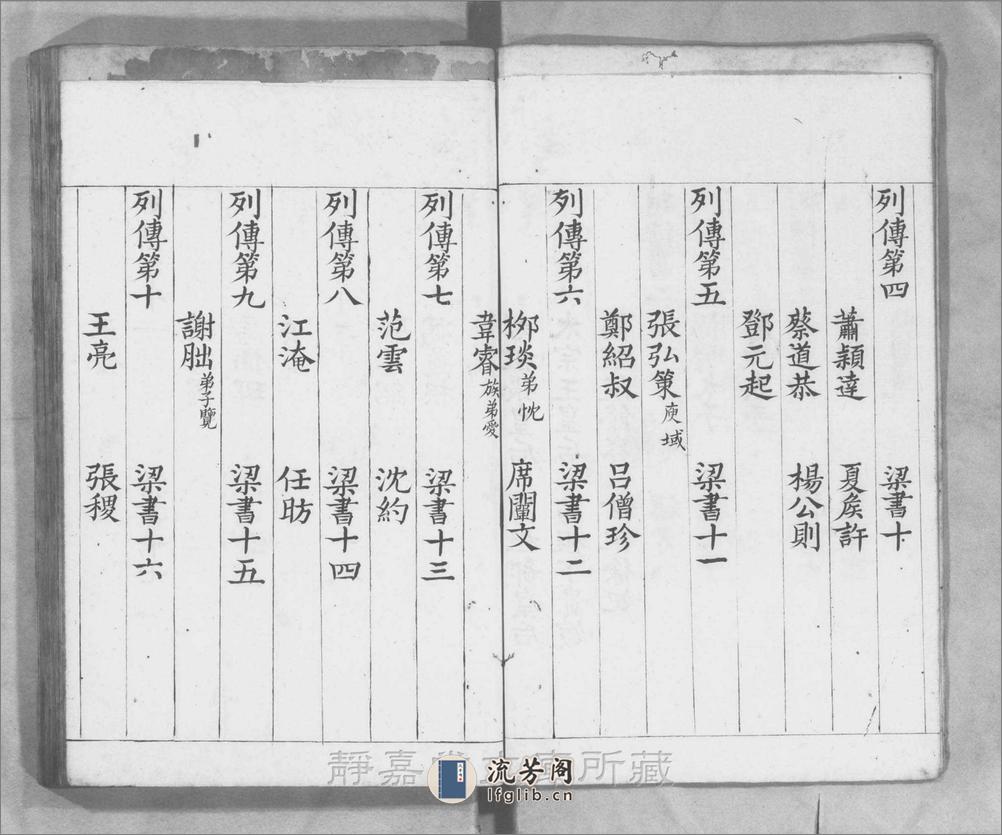 列傳第四 梁書十
蕭穎達 夏矦許
蔡道恭 楊公則
鄧元起
列傳第五 梁書十一
張弘策庾域
鄭紹叔 呂僧珍
列傳第六 梁書十二
栁琰弟忱 席闡文
韋睿族弟愛
列傳第七 梁書十三
范雲 沈約
列傳第八 梁書十四
江淹 任昉
列傳第九 梁書十五
謝朏弟子覽
列傳第十 梁書十六
王亮 張稷
靜嘉堂文庫所藏
流芳阁
lfglib.cn